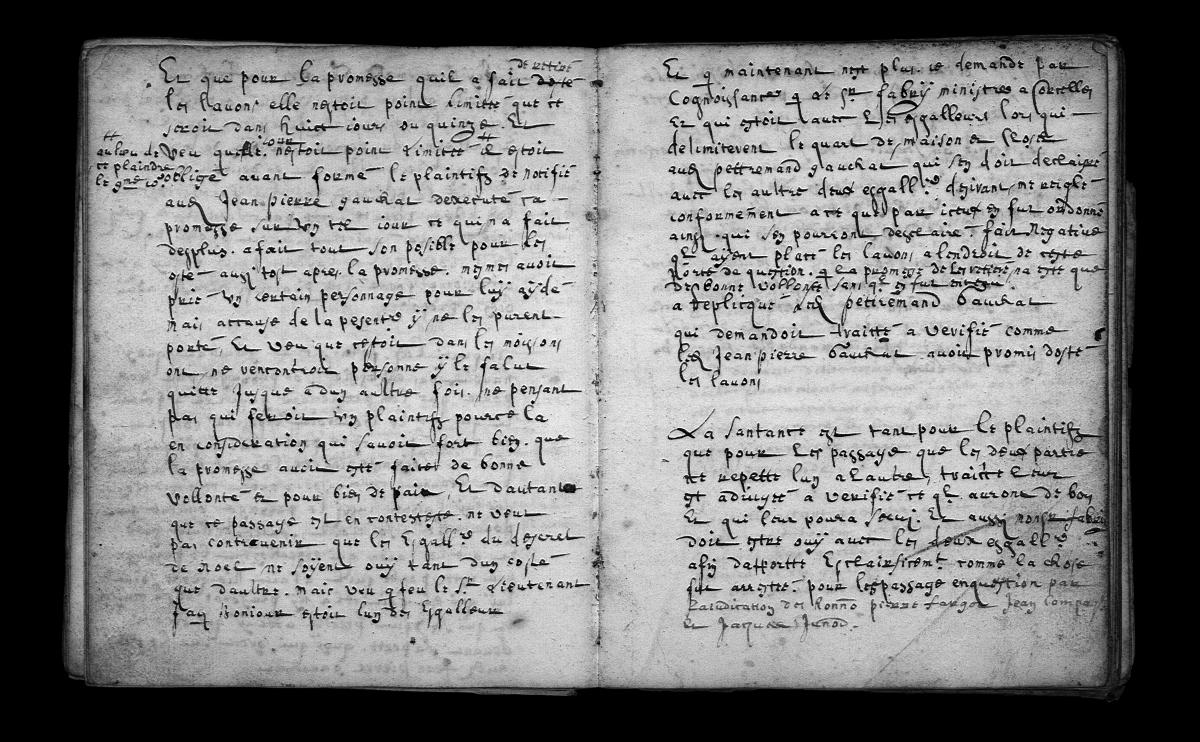 de retiré
Et que pour la promesse quil a fait dosté
les lavons elle nestoit point limitte que ce
seroit dans huict iours ou quinze. Et
veu quelle nestoit point limitté il estoit
au lieu de
ce plaindre
obligé avant formé le plaintifz de notifié
aud Jean pierre gauchat dexecuté sa
promesse sur un tel iour ce qui na fait
desplus a fait tout son posible pour les
osté ausi tost apres la promesse. mesmes avoit
prié un certain personnage pour luy aydé
mais accause de la pesentr ÿ ne les purent
porté, Et veu que cestoit dans les moissons
ont ne rencontroit personne ÿ le falut
quitté jusque a dun aultre fois. ne pensant
pas qui feroit un plaintifz pource la
en consideration qui savoit fort bien que
la promesse avoit esté faites de bonne
vollonté et pour bien de paix, Et dautant
que ce passage est en conteste ne veut
pas contrevenir que les Esgall.rs du descret
de Noel ne soyent ouy tant dun costé
que daultre. Mais veu q feu le Sr. Lieutenant
Bonjour estoit lun des Esgalleur
Et q maintenant nest plus. ie demande par
Cognoissance q le Sr fabry ministre a Corcelles
Et qui estoit avec les esgalleurs lors qui
delimiterent le quart de maison et close
aud pettremand gauchat qui sen doit declairé
avec les aultre deux esgall.rs desivant, me reiglé
conformement a ce que par iceux en fut ordonné
ainsi qui sen pourront desclairé. fait Negative
qe ayent placé les lavons a lendroit de ceste
porte de question. q la promesse de les retiré na esté que
de bonne vollonté sans qe en fut
a Replicqué led petremand Gauchat
qui demandoit traitté a verifié comme
led Jean pierre Gauchat avoit promis dosté
les lavons
La Santance est tant pour le plaintifz
que pour les passage que les deux partie
ce repette lun a lautre, traitté leur
est adiugé a verifié ce qe auront de bon
Et qui leur poura servi. Et aussi nonSr fabri
doit estre ouy avec les deux esgall.rs
afin daportté Esclairsicemt comme la chose
fut arresté pour les passage en question par
Laiudication des honno pierre fargo Jean Compa
Et Jaques Junod.